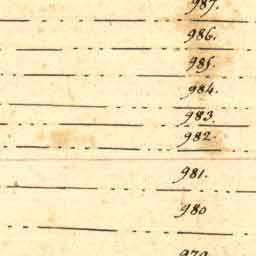 987.
986.
985.
984.
983.
982.
981.
980
979